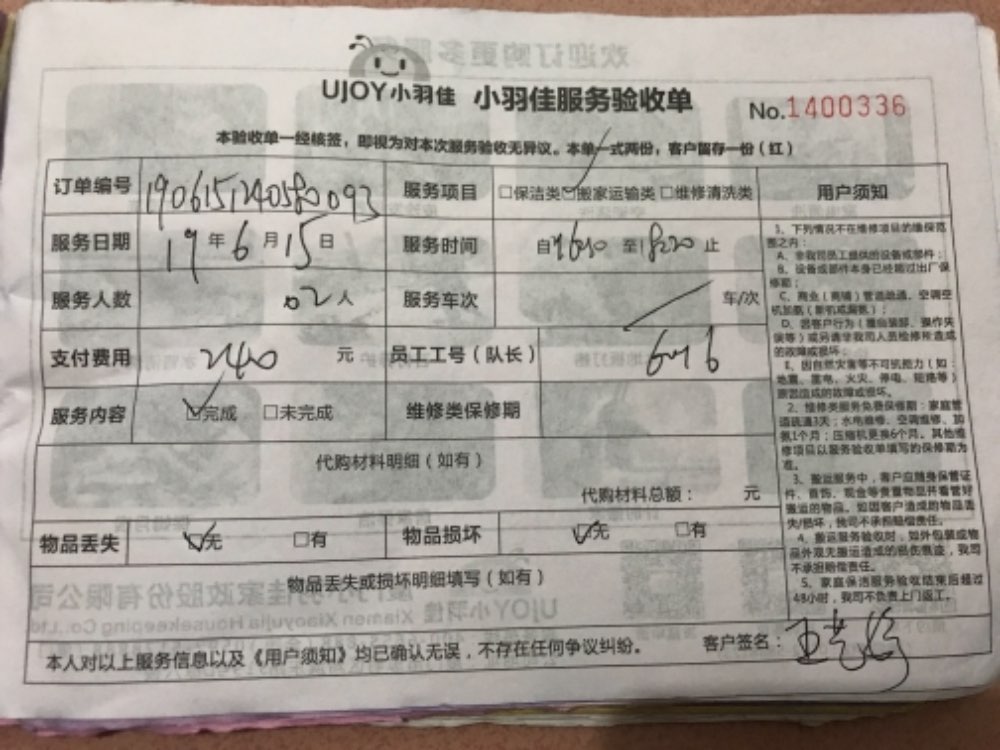 UJOY小羽佳 小羽佳服务验收单 No.1400336
本验收单一经核签，即视为对本次服务验收无异议。本单一式两份，客户留存一份（红）
订单编号 1906151240580093 服务项目 □保洁类 ☑搬家运输类 □维修清洗类 用户须知
服务日期 19年6月15日 服务时间 自1630至1820止
服务人数 02人 服务车次 车/次
支付费用 240元 员工工号（队长）
服务内容 ☑完成 □未完成 维修类保修期
代购材料明细（如有）
代购材料总额： 元
物品丢失 ☑无 □有 物品损坏 ☑无 □有
物品丢失或损坏明细填写（如有）
本人对以上服务信息以及《用户须知》均已确认无误，不存在任何争议纠纷。 客户签名：
1、下列情况不在维修项目的维保范
围之内：
A、非我司员工提供的设备或部件；
B、设备或部件本身已经超过出厂保
修期；
C、商业（商铺）管道疏通、空调空
机加氨（新机或漏氨）；
D、因客户行为（擅自装卸、操作失
误等）或另请非我司人员检修所造成
的故障或损坏；
E、因自然灾害等不可抗能力（如：
地震、雷电、火灾、停电、短路等）
原因造成的故障或损坏。
2、维修类服务免费保修期：家庭管
道疏通3天；水电维修、空调维修、加
氨1个月；压缩机更换6个月。其他维
修项目以服务验收单填写的保修期为
准。
3、搬运服务中，客户应随身保管证
件、首饰、现金等贵重物品并看管好
搬运的物品。如因客户造成的物品丢
失/损坏，我司不承担赔偿责任。
4、搬运服务验收时，如外包装或物
品外观无搬运造成的损伤痕迹，我司
不承担赔偿责任。
5、家庭保洁服务验收结束后超过
48小时，我司不负责上门返工。